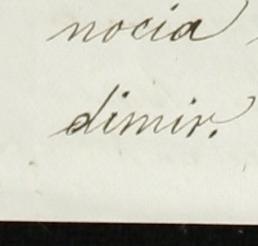 nocia
dimir.